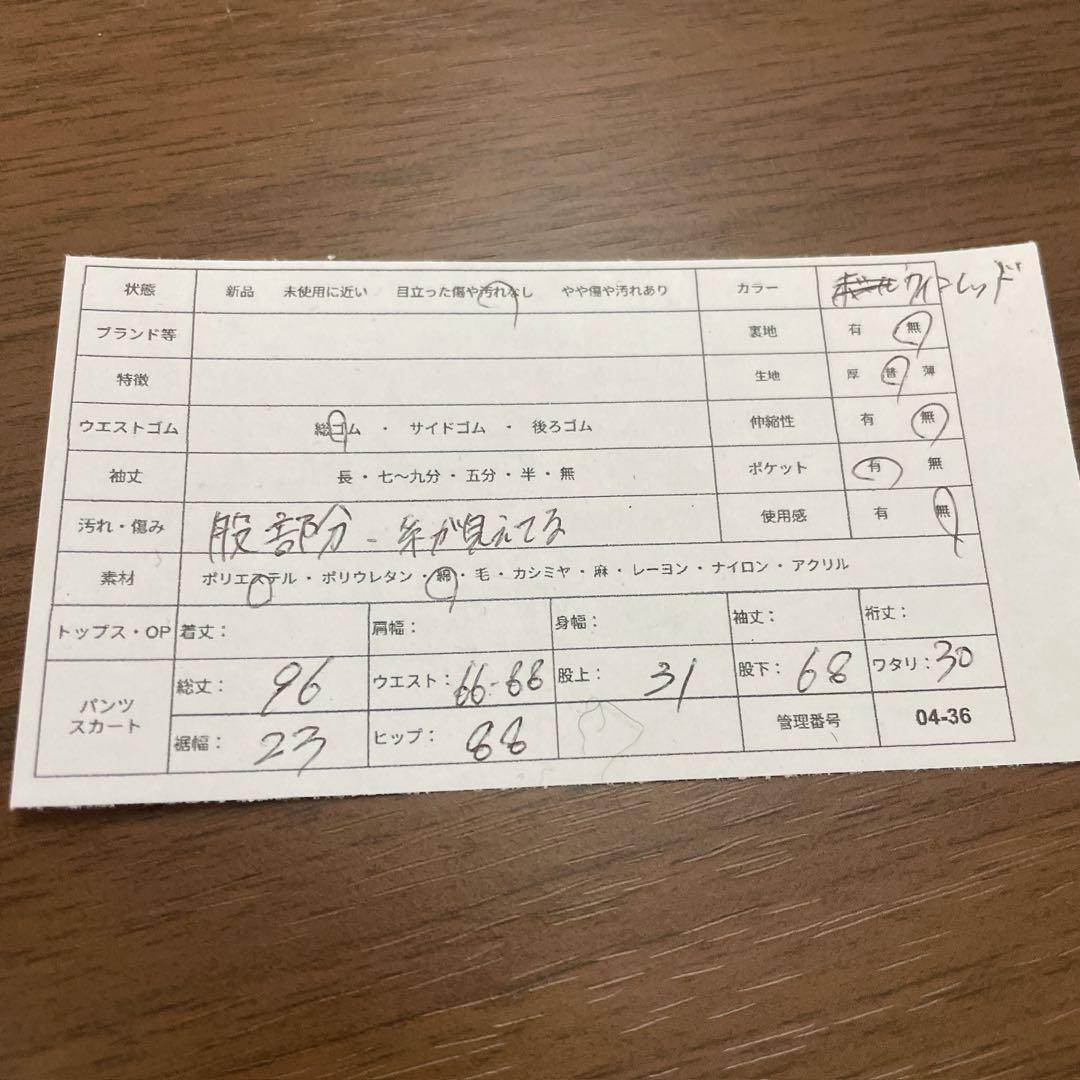 状態 新品 未使用に近い 目立った傷や汚れなし やや傷や汚れあり カラー ワインレッド
ブランド等 裏地 有 無
特徴 生地 厚 普 薄
ウエストゴム 総ゴム ・ サイドゴム ・ 後ろゴム 伸縮性 有 無
袖丈 長・七〜九分・五分・半・無 ポケット 有 無
汚れ・傷み 股部分 - 糸が見えてる 使用感 有 無
素材 ポリエステル・ポリウレタン・綿・毛・カシミヤ・麻・レーヨン・ナイロン・アクリル
トップス・OP 着丈: 肩幅: 身幅: 袖丈: 裄丈:
パンツ
スカート
総丈: 96 ウエスト: 66-88 股上: 31 股下: 68 ワタリ: 30
裾幅: 23 ヒップ: 88 管理番号 04-36